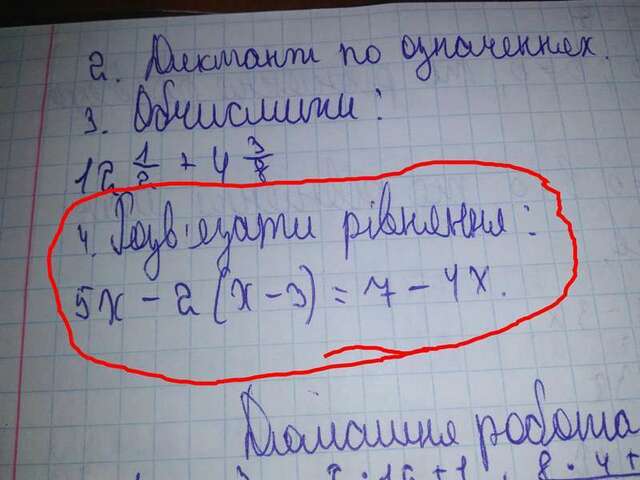 2. Диктант по означеннях.
3. Обчислити:
12 1/2 + 4 3/8
4. Розв'язати рівняння:
5x - 2(x - 3) = 7 - 4x.
Домашня робота